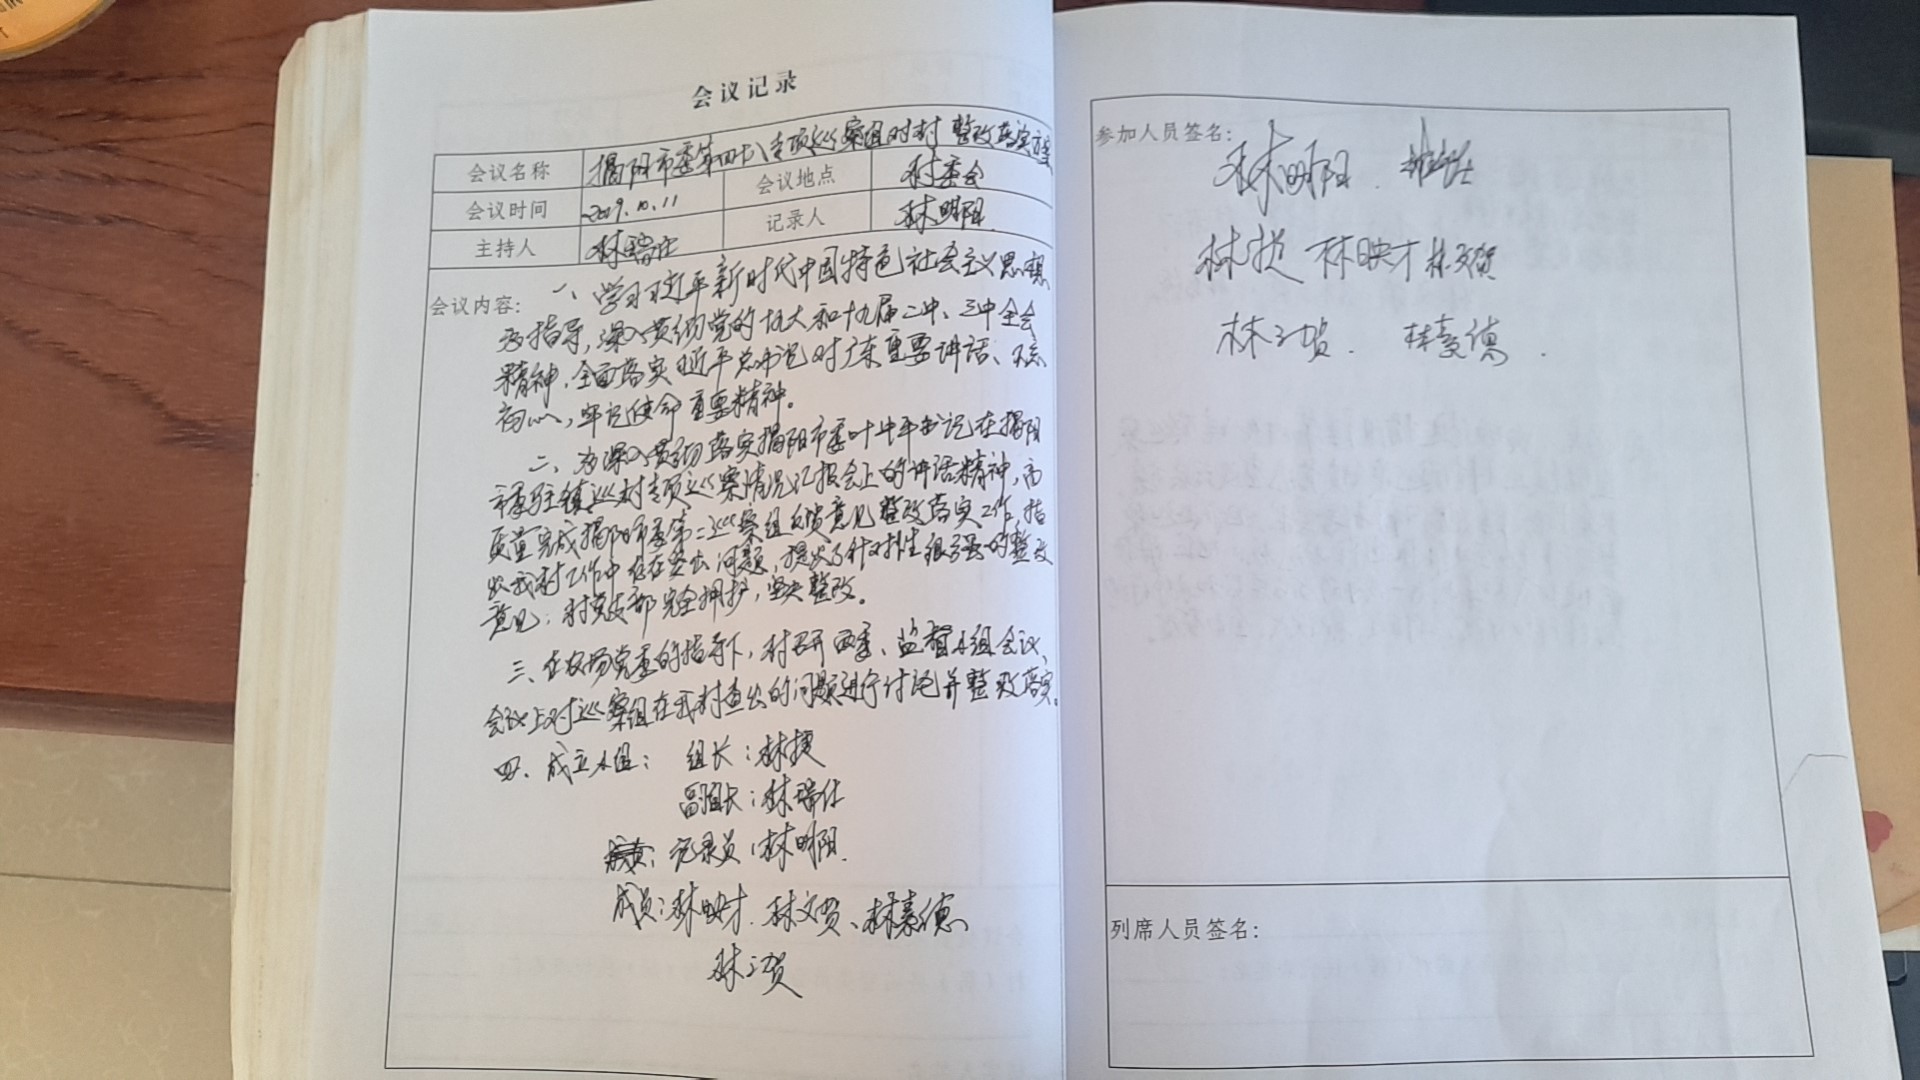 会议记录
会议名称 揭阳市委第四十八专项巡察组对村 整改落实方案
会议时间 2019.10.11 会议地点 村委会
主持人 林瑞仕 记录人 林明阳
会议内容: 一、学习习近平新时代中国特色社会主义思想
为指导,深入贯彻党的十九大和十九届二中、三中全会
精神,全面落实习近平总书记对广东重要讲话、不忘
初心,牢记使命重要精神。
二、为深入贯彻落实揭阳市委叶牛平书记在揭阳
市委驻镇巡村专项巡察情况汇报会上的讲话精神,高
质量完成揭阳市委第二巡察组反馈意见整改落实工作,指
出我村工作中存在突出问题,提出了针对性很强的整改
意见;村党支部完全拥护,坚决整改。
三、在农场党委的指导下,村召开两委、监督小组会议,
会议上对巡察组在我村查出的问题进行讨论并整改落实。
四、成立小组: 组长:林捷
副组长:林瑞仕
记录员:林明阳.
成员:林映才.林文贺、林素德
林三贺
参加人员签名:
林明阳.
林捷 林映才 林文贺
林三贺. 林素德.
列席人员签名: